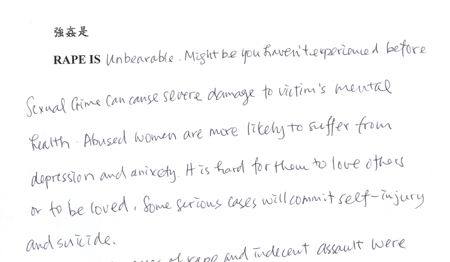 強姦是
RAPE IS Unbearable. Might be you haven't experienced before
Sexual Crime can cause severe damage to victim's mental
health. Abused women are more likely to suffer from
depression and anixety. It is hard for them to love others
or to be loved. Some serious cases will commit self-injury
and suicide.
of rape and indecent assault were